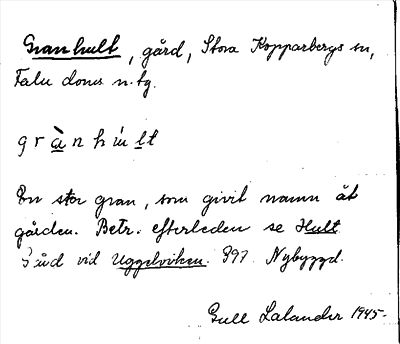 Granhult, gård, Stora Kopparbergs sn,
Falu doms. n. tg.
g r à n h u l t
En stor gran, som givit namn åt
gården. Betr. efterleden se Hult
vid Uggelviken. 897. Nybyggd.
Gull Lalander 1945.